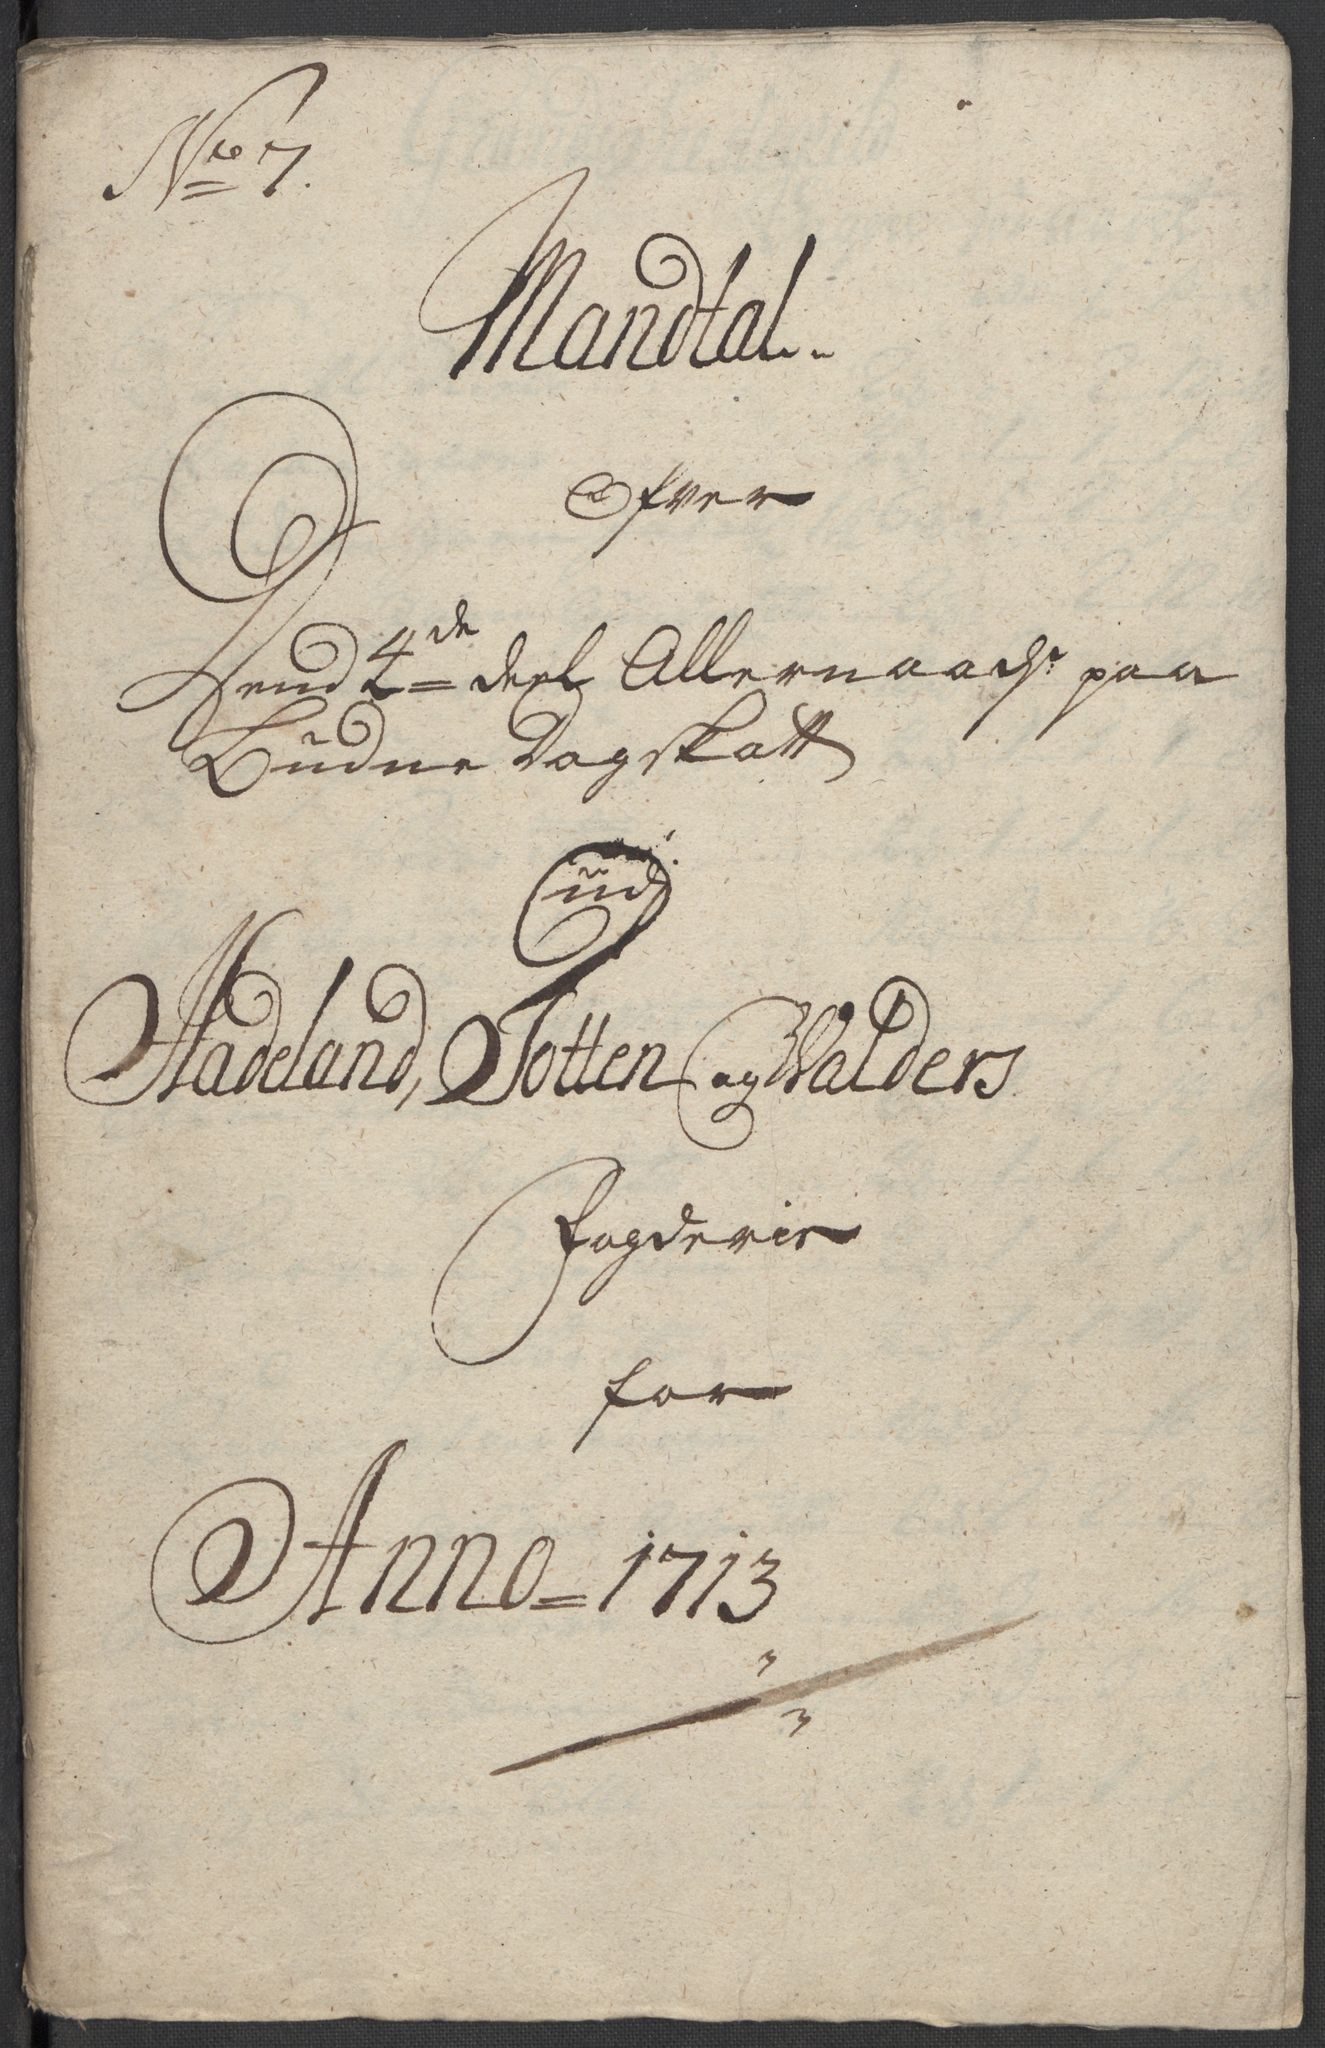 No 7.
Mandtal.
Ofver
Dend 4de deel Allernaadst paa
Budne Dagskatt
Udj
Hadeland, Totten og Walders
Fogderie
for
Anno 1713